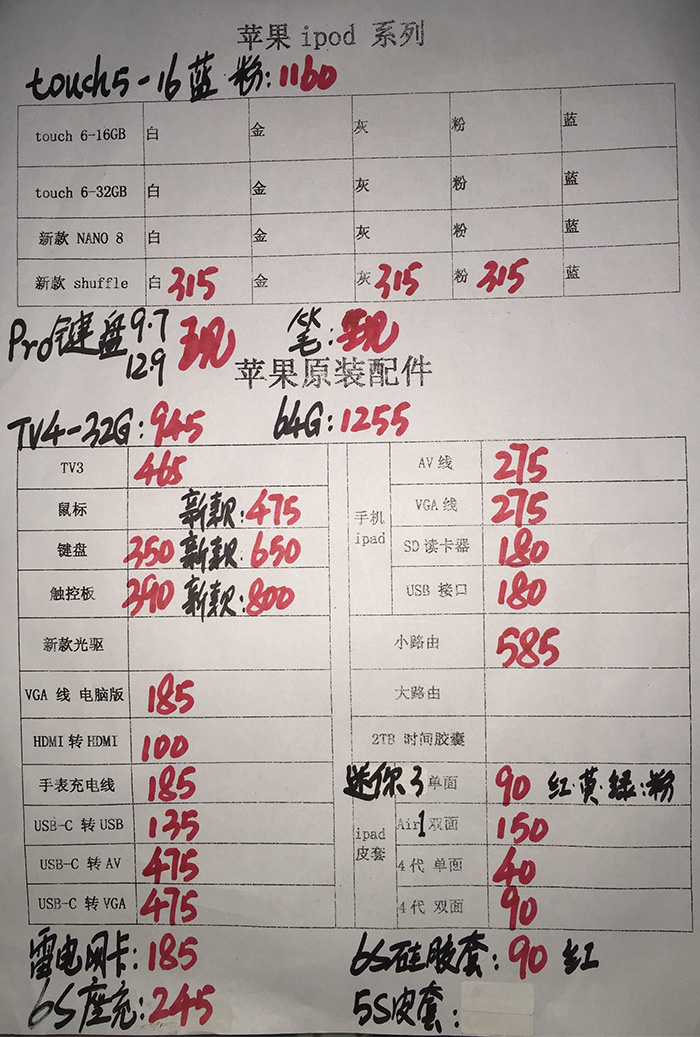 苹果 ipod 系列
touch5-16蓝 粉:1160
touch 6-16GB 白 金 灰 粉 蓝
touch 6-32GB 白 金 灰 粉 蓝
新款 NANO 8 白 金 灰 粉 蓝
新款 shuffle 白 315 金 灰 315 粉 315 蓝
Pro键盘 9.7 现 笔:现
12.9
苹果原装配件
TV4-32G:945 64G:1255
TV3 465
鼠标 新款:475
键盘 350 新款:650
触控板 390 新款:800
新款光驱
VGA 线 电脑版 185
HDMI 转 HDMI 100
手表充电线 185
USB-C 转 USB 135
USB-C 转 AV 475
USB-C 转 VGA 475
手机 ipad
AV 线 275
VGA 线 275
SD 读卡器 180
USB 接口 180
小路由 585
大路由
2TB 时间胶囊
ipad 皮套
迷你3 单面 90 红·黄·绿·粉
Air1 双面 150
4代 单面 40
4代 双面 90
雷电网卡:185 6S硅胶套:90 红
6S座充:245 5S皮套: